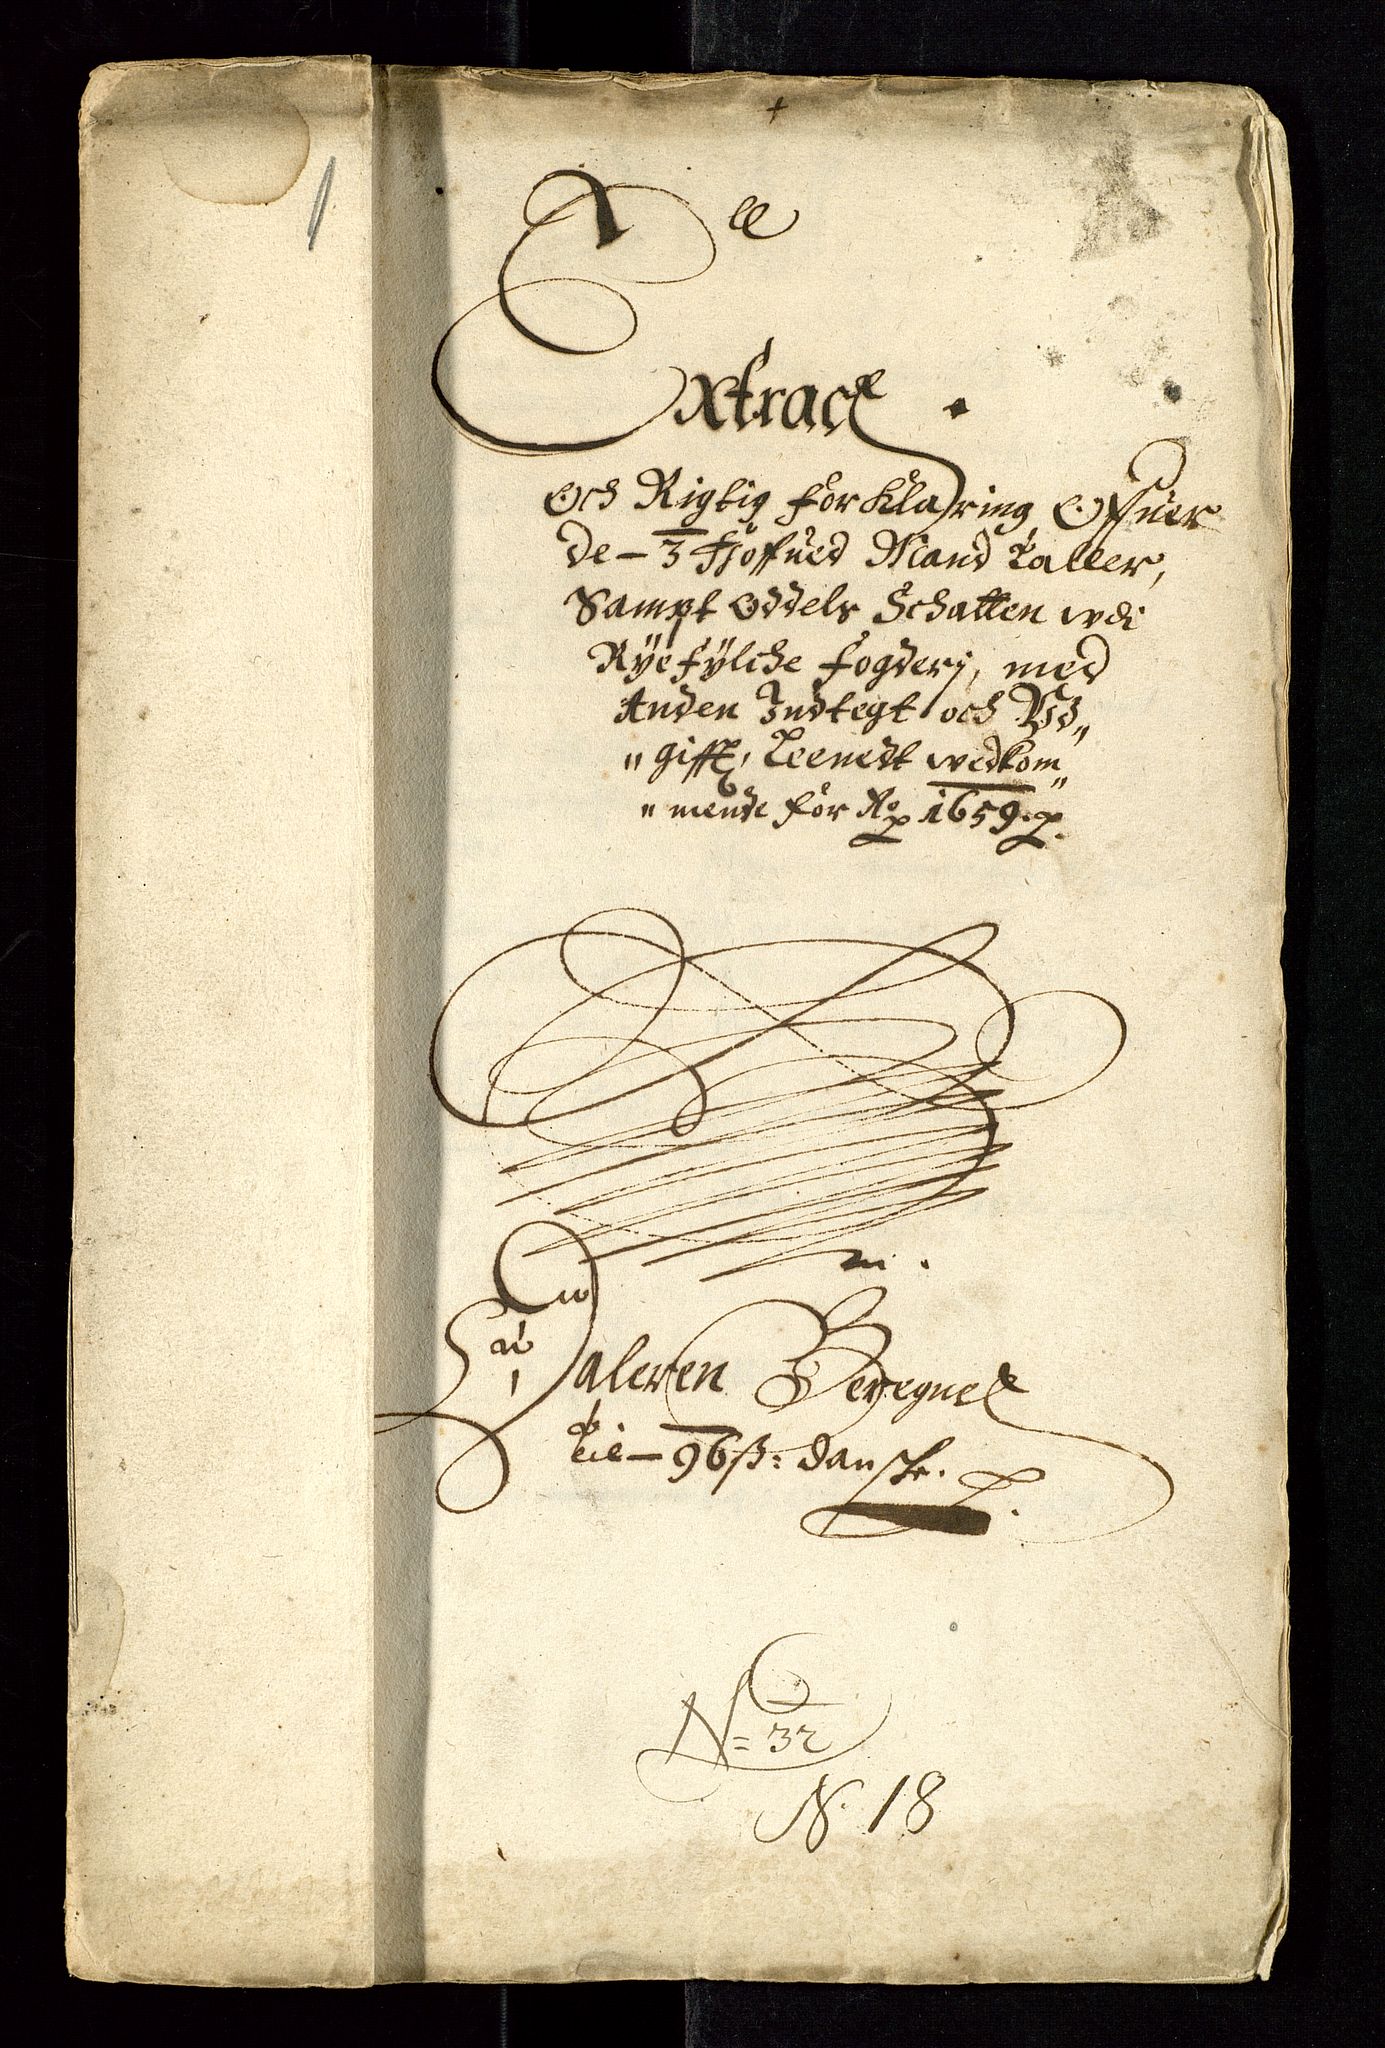 1
Extract
Och Rigtig forklaring Offuer
de - 3 Hoffued Mand taller,
Sampt Oddels Schatten wdi
Ryefylche fogderj, med
Anden Indtegt och Vd„
„ gifft, Leenedt wedkom„
„ mende for Ao 1659.
Daleren Beregnet
til - 96 ß: danske.
N = 32
N. 18